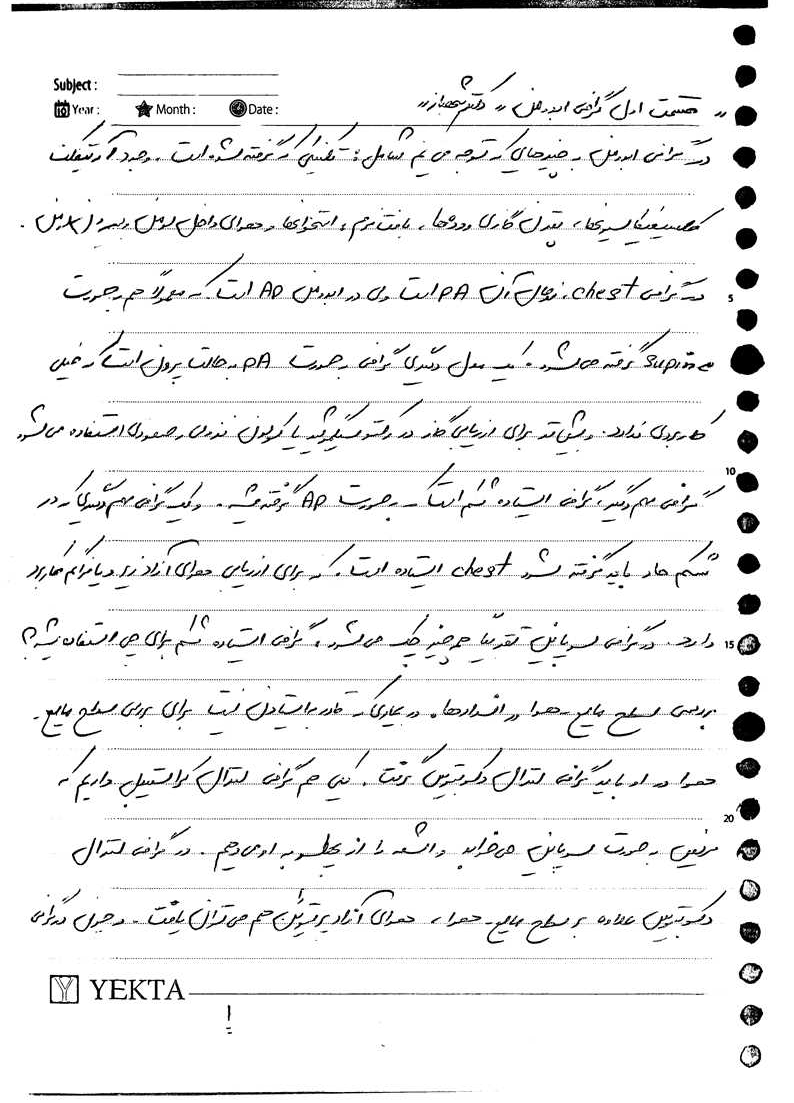 Subject :
Year :   Month :   Date :
" قسمت اول گرافی ابدومن " دکتر شهباز "
در گرافی ابدومن به چیزهایی که توجه می کنیم شامل : تکنیکی که گرفته شده است ، وجود آرتیفکت
کلسیفیکاسیونها، الگوی گازی روده‌ها، بافت نرم ، استخوانها و هوای داخل لومن و بیرون لومن .
در گرافی chest، نرمال آن PA است ولی در ابدومن AP است که معمولاً هم بصورت
supine گرفته می‌شود . یک مدل دیگری گرافی بصورت PA به حالت پرون است که خیلی
کاربردی ندارد. و بیشتر برای ارزیابی گاز در رکتوسیگموئید یا کولون نزولی و صعودی استفاده می‌شود
5
گرافی مهم دیگر، گرافی ایستاده شکم است که بصورت AP گرفته میشه . و یک گرافی مهم دیگری که در
10
شکم حاد باید گرفته شود chest ایستاده است . که برای ارزیابی هوای آزاد زیر دیافراگم کاربرد
دارد. در گرافی سوپاین تقریباً همه چیز چک می‌شود ، گرافی ایستاده شکم برای چی استفاده میشه؟
15
بررسی سطح مایع - هوا در انسدادها. در بیماری که قادر به ایستادن نیست برای بررسی سطح مایع -
هوا در او باید گرافی لترال دکوبیتوس گرفت . یکی هم گرافی لترال کراس تیبل داریم که
20
مریض بصورت سوپاین می‌خوابد و اشعه را از پهلو به او می‌دهیم . در گرافی لترال
دکوبیتوس علاوه بر سطح مایع - هوا ، هوای آزاد پریتوئن هم می‌توان یافت . و چون در گرافی
YEKTA
1